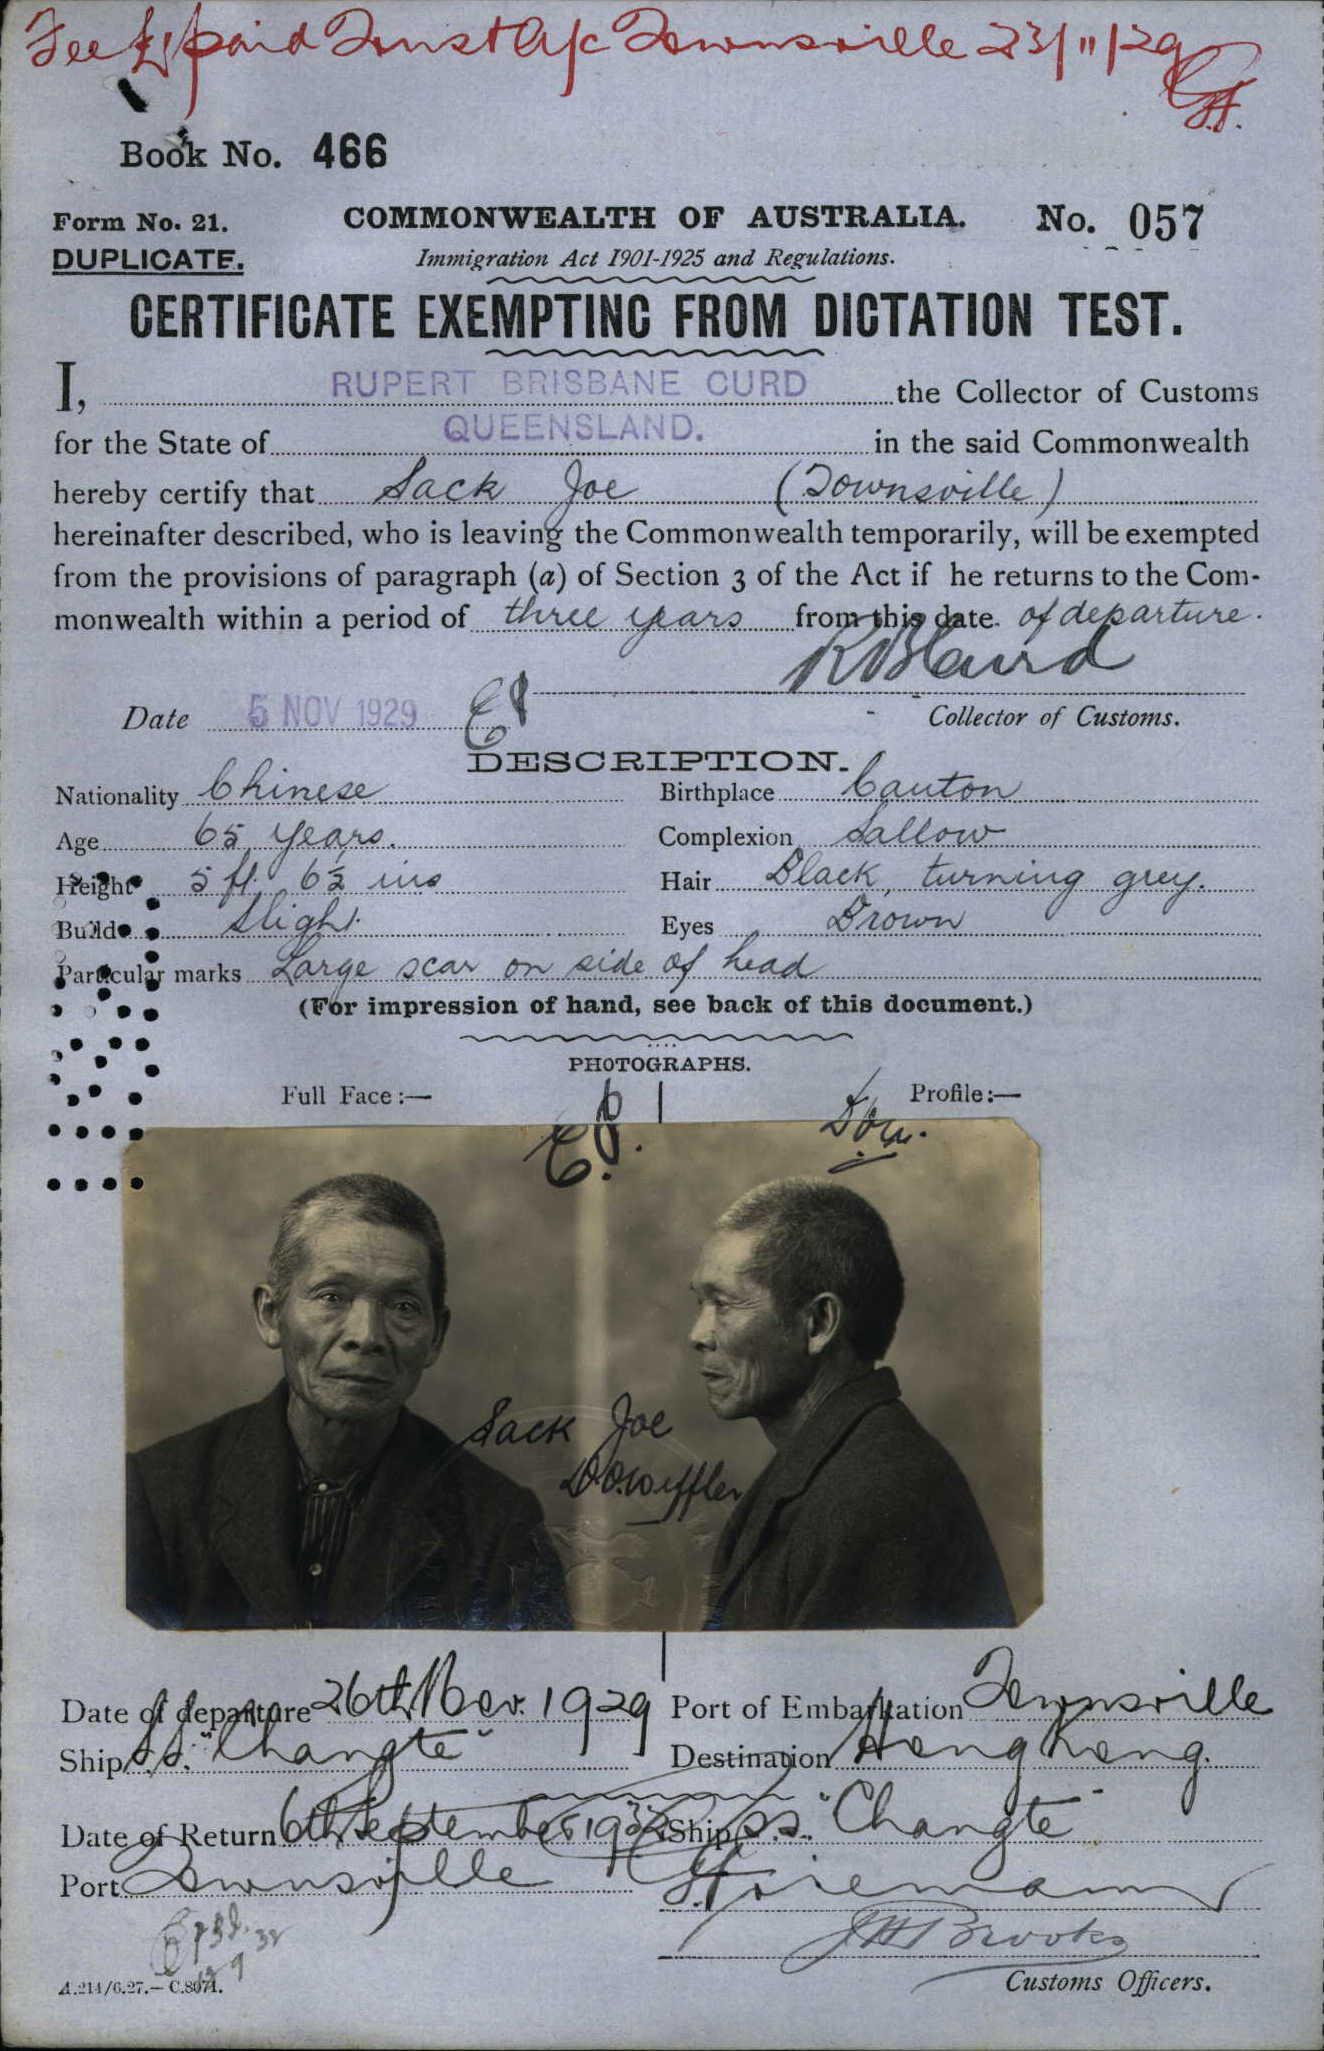 Fee £1 paid Trust A/c Townsville 23/11/29
Book No. 466
Form No. 21. COMMONWEALTH OF AUSTRALIA. No. 057
DUPLICATE. Immigration Act 1901-1925 and Regulations.
CERTIFICATE EXEMPTING FROM DICTATION TEST.
I, RUPERT BRISBANE CURD the Collector of Customs
for the State of QUEENSLAND. in the said Commonwealth
hereby certify that Sack Joe (Townsville)
hereinafter described, who is leaving the Commonwealth temporarily, will be exempted
from the provisions of paragraph (a) of Section 3 of the Act if he returns to the Com-
monwealth within a period of three years from this date. of departure.
RBCurd
Date 5 NOV 1929 Collector of Customs.
DESCRIPTION.
Nationality Chinese Birthplace Canton
Age 65 years. Complexion Sallow
Height 5 ft. 6½ ins Hair Black, turning grey.
Build Slight Eyes Brown
Particular marks Large scar on side of head
(For impression of hand, see back of this document.)
PHOTOGRAPHS.
Full Face:— Profile:—
Sack Joe
Date of departure 26th Nov. 1929 Port of Embarkation Townsville
Ship S.S. "Changte" Destination Hong Kong.
Date of Return 6th September 1932 Ship S.S. "Changte"
Port Townsville
JHBrooks
A.214/6.27.—C.8074. Customs Officers.